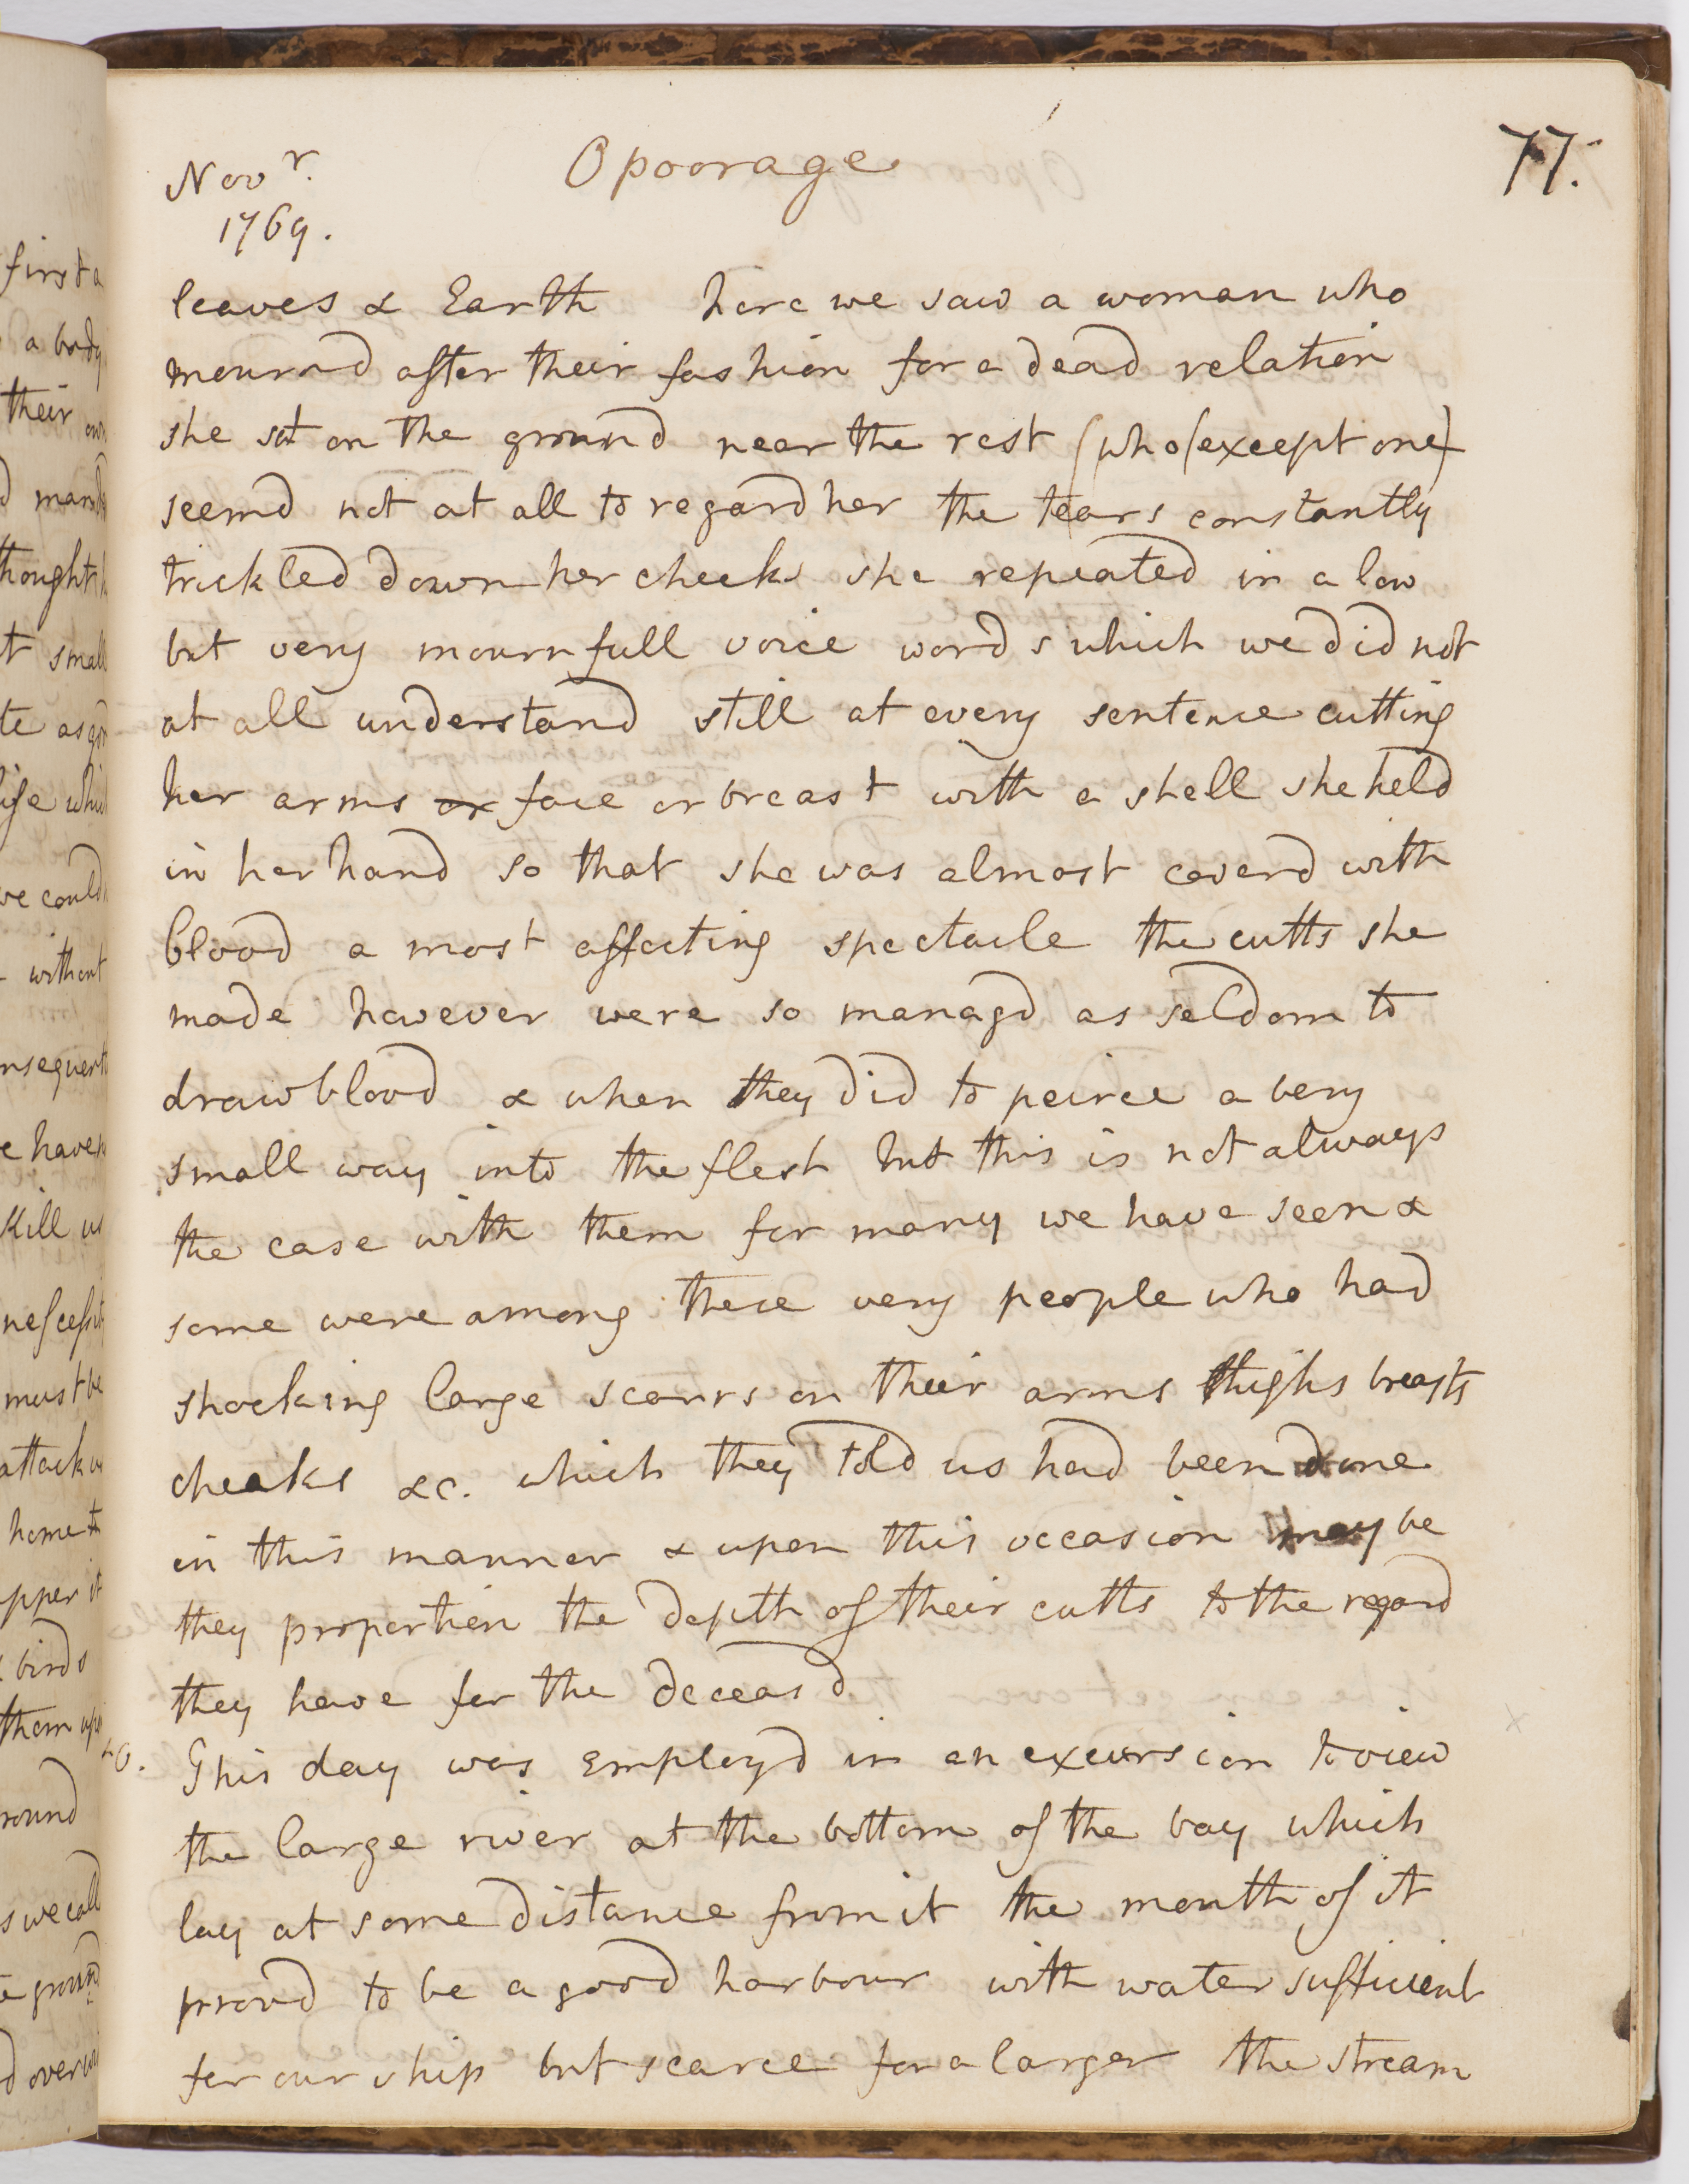 Novr.
1769.
Opoorage
77.
leaves & Earth here we saw a woman who
mournd after their fashion for a dead relation
she sat on the ground near the rest (who (except one)
seemd not at all to regard her the tears constantly
trickled down her cheeks she repeated in a low
but very mournfull voice words which we did not
at all understand still at every sentence cutting
her arms or face or breast with a shell she held
in her hand so that she was almost coverd with
blood a most affecting spectacle the cutts she
made however were so managd as seldom to
draw blood & when they did to peirce a very
small way into the flesh but this is not always
the case with them for many we have seen &
some were among these very people who had
shocking large scarrs on their arms thighs breasts
cheaks &c. which they told us had been done
in this manner & upon this occasion may be
they proportion the depth of their cutts to the regard
they have for the deceasd
20. This day was employd in an excursion to view
the large river at the bottom of the bay which
lay at some distance from it the mouth of it
provd to be a good harbour with water sufficient
for our ship but scarce for a larger the stream
first a
a body
their own
thought
t small
te as
we could
without
e have
Kill us
must be
attack us
home to
pper it
& birds
them up
round
s we call
ground